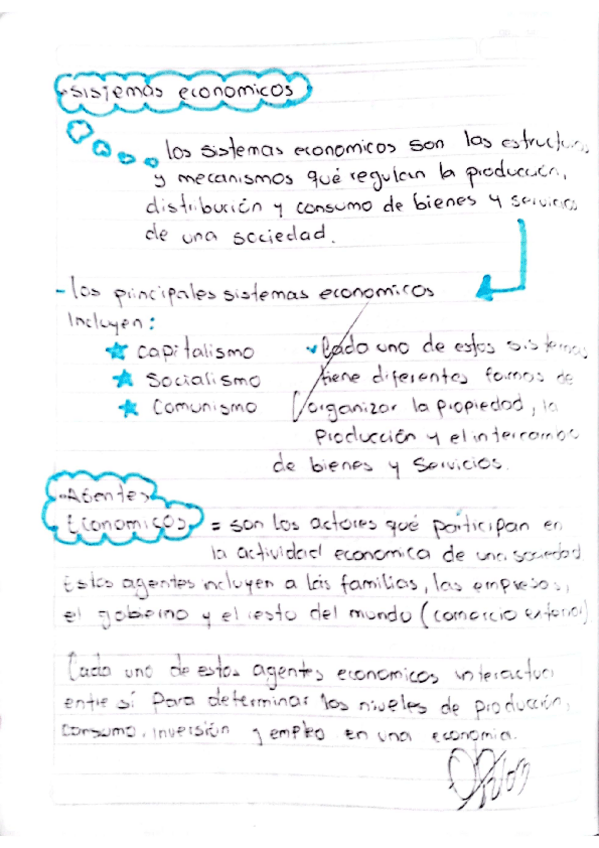 Sistemas economicos
los sistemas economicos son las estructuras
y mecanismos qué regulan la producción,
distribución y consumo de bienes y servicios
de una sociedad.
- los principales sistemas economicos
Incluyen:
capitalismo
Socialismo
Comunismo
Cada uno de estos sistemas
tiene diferentes formas de
organizar la propiedad, la
Producción y el intercambio
de bienes y Servicios.
Agentes
Economicos = son los actores qué participan en
la actividad economica de una sociedad
Estos agentes incluyen a las familias, las empresas,
el gobierno y el resto del mundo (comercio exterior)
Cada uno de estos agentes economicos interactua
entre sí Para determinar los niveles de producción,
Consumo, inversión y empleo en una economia.